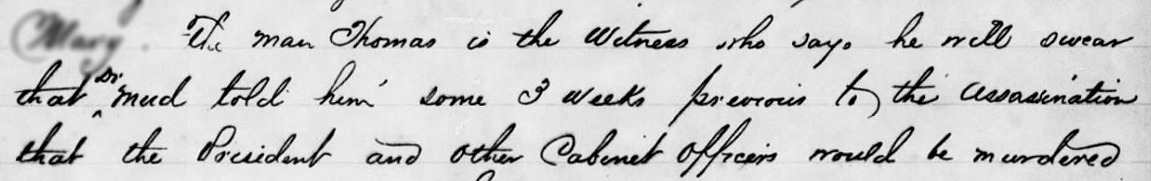 The man Thomas is the Witness who says he will swear
that Dr. Mud told him some 3 weeks previous to the assassination
that the President and other Cabinet officers would be murdered